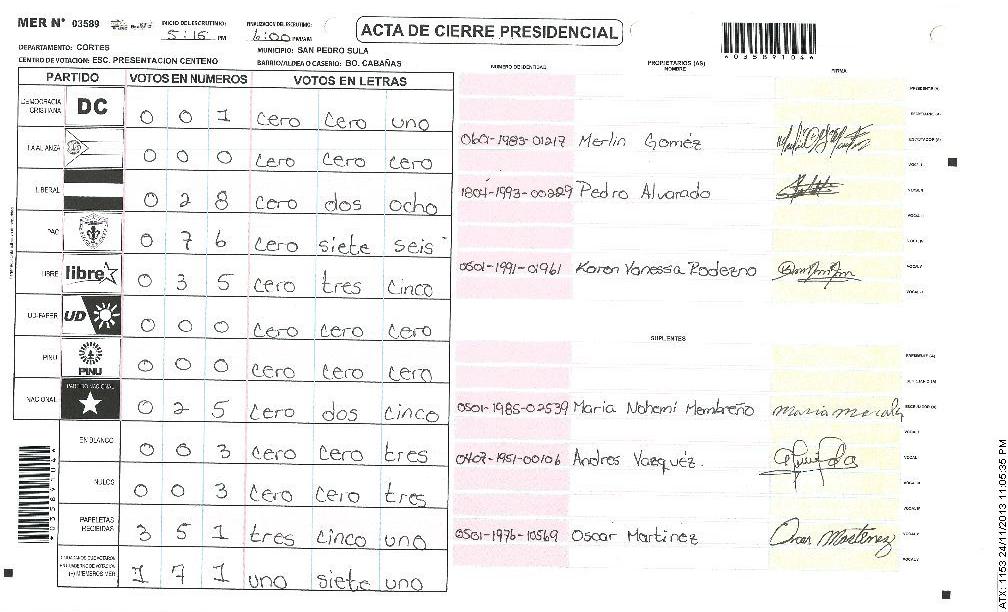 MER N° 03589
INICIO DEL ESCRUTINIO: 5:15 PM
FINALIZACION DEL ESCRUTINIO: 6:00 PM/AM
ACTA DE CIERRE PRESIDENCIAL
DEPARTAMENTO: CORTES
MUNICIPIO: SAN PEDRO SULA
CENTRO DE VOTACION: ESC. PRESENTACION CENTENO
BARRIO/ALDEA O CASERIO: BO. CABAÑAS
PARTIDO VOTOS EN NUMEROS VOTOS EN LETRAS
DEMOCRACIA CRISTIANA DC 0 0 1 cero cero uno
LA ALIANZA 0 0 0 cero cero cero
LIBERAL 0 2 8 cero dos ocho
PAC 0 7 6 cero siete seis
LIBRE libre 0 3 5 cero tres cinco
UD-FAPER UD 0 0 0 cero cero cero
PINU PINU 0 0 0 cero cero cero
NACIONAL PARTIDO NACIONAL 0 2 5 cero dos cinco
EN BLANCO 0 0 3 cero cero tres
NULOS 0 0 3 cero cero tres
PAPELETAS RECIBIDAS 3 5 1 tres cinco uno
(+) MIEMBROS MER 1 7 1 uno siete uno
NUMERO DE IDENTIDAD PROPIETARIOS (AS) NOMBRE FIRMA
Merlin Goméz
1804-1993-00229 Pedro Alvarado
0501-1991-01961 Karen Vanessa Rodezno
SUPLENTES
0501-1985-02539 Maria Nohemí Membreño
0402-1951-00106 Andres Vazquéz.
0501-1976-10569 Oscar Martinez
Oscar Martinez
ATX: 1153 24/11/2013 11:05:35 PM